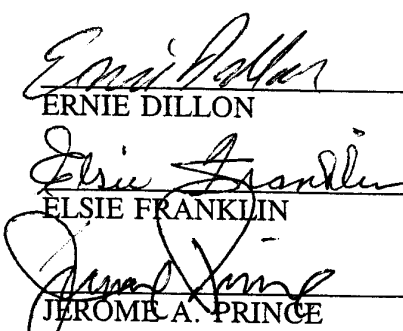 Ernie Dillon
ERNIE DILLON
Elsie Franklin
ELSIE FRANKLIN
JEROME A. PRINCE